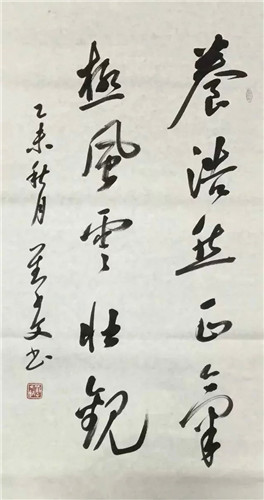 養浩然正氣
極風雲壯觀
乙未秋月
文書